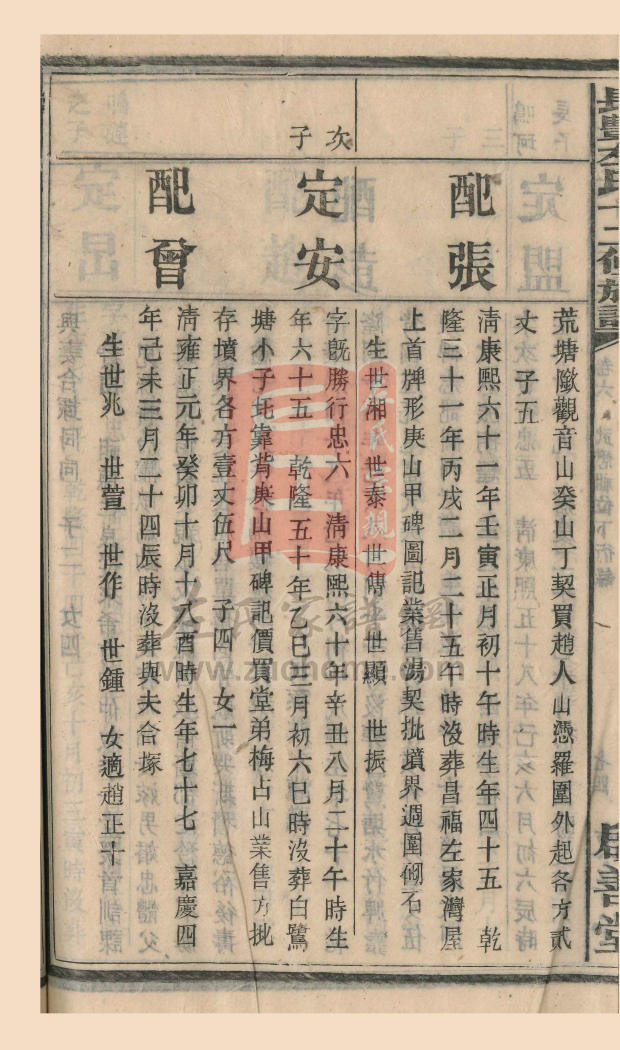 荒塘歘觀音山癸山丁契買趙人山憑羅圍外起各方貳
丈 子五
配張
清康熙六十一年壬寅正月初十午時生年四十五 乾
隆三十一年丙戌二月二十五午時沒葬昌福左家灣屋
上首牌形庚山甲碑圖記業售湯契批墳界週圍砌石
生世湘 世泰 世傳 世顯 世振
次子
定安
字旣勝行忠六 清康熙六十年辛丑八月二十午時生
年六十五 乾隆五十年乙巳三月初六巳時沒葬白鷺
塘小子 靠背庚山甲碑記價買堂弟梅占山業售方批
存墳界各方壹丈伍尺 子四 女一
配曾
清雍正元年癸卯十月十八酉時生年七十七 嘉慶四
年己未三月二十四辰時沒葬與夫合塚
生世兆 世萱 世作 世鍾 女適趙正十
左氏家譜網
www.zuohome.com